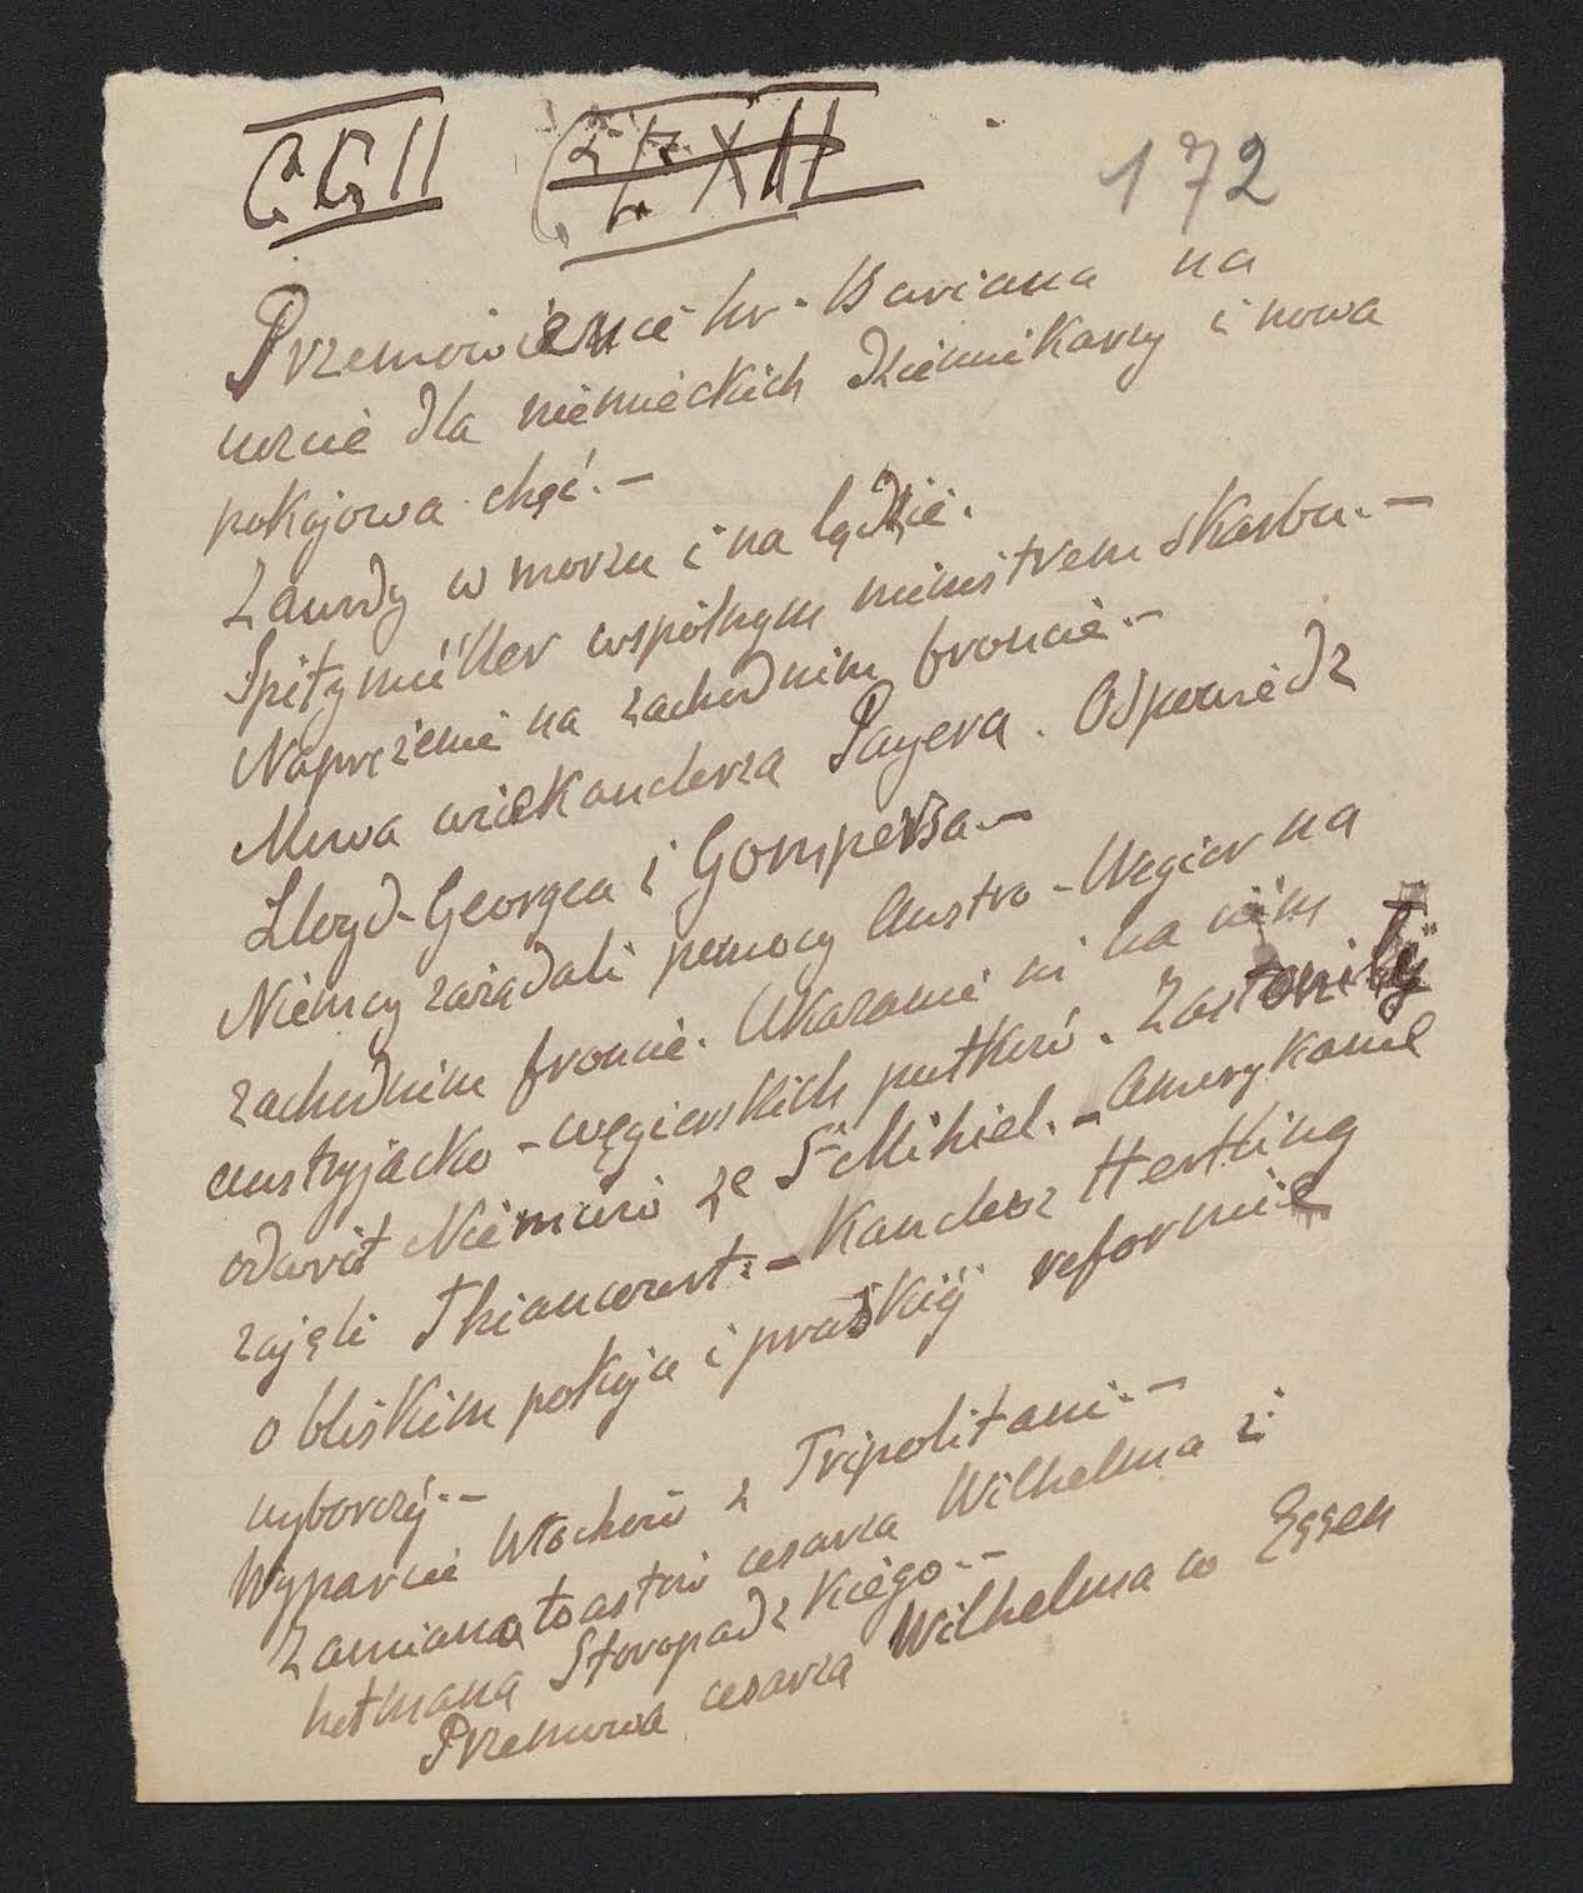 CCII ~~CLXII~~ 172
Przemówienie hr. Buriana na
uczcie dla niemieckich dziennikarzy i nowa
pokojowa chęć. —
Zawody w morzu i na lądzie.
Spitzmüller wspólnym ministrem skarbu. —
Naprężenie na zachodnim froncie. —
Mowa wicekanclerza Payera. Odpowiedz
Lloyd-Georgea i Gompersa —
Niemcy zażądali pomocy Austro-Węgier na
zachodnim froncie. Ukazanie się na nim
austryjacko-węgierskich pułków. Zasłonił ję
odwrót Niemców ze St Mihiel. — Amerykanie
zajęli Thiaucourt. — Kanclerz Hertling
o bliskim pokoju i pruskiéj reformie
wyborczéj. —
Wyparcie Włochów z Tripolitanii. —
Zamiana toastów cesarza Wilhelma i
hetmana Skoropadzkiego. —
Przemowa cesarza Wilhelma w Essen